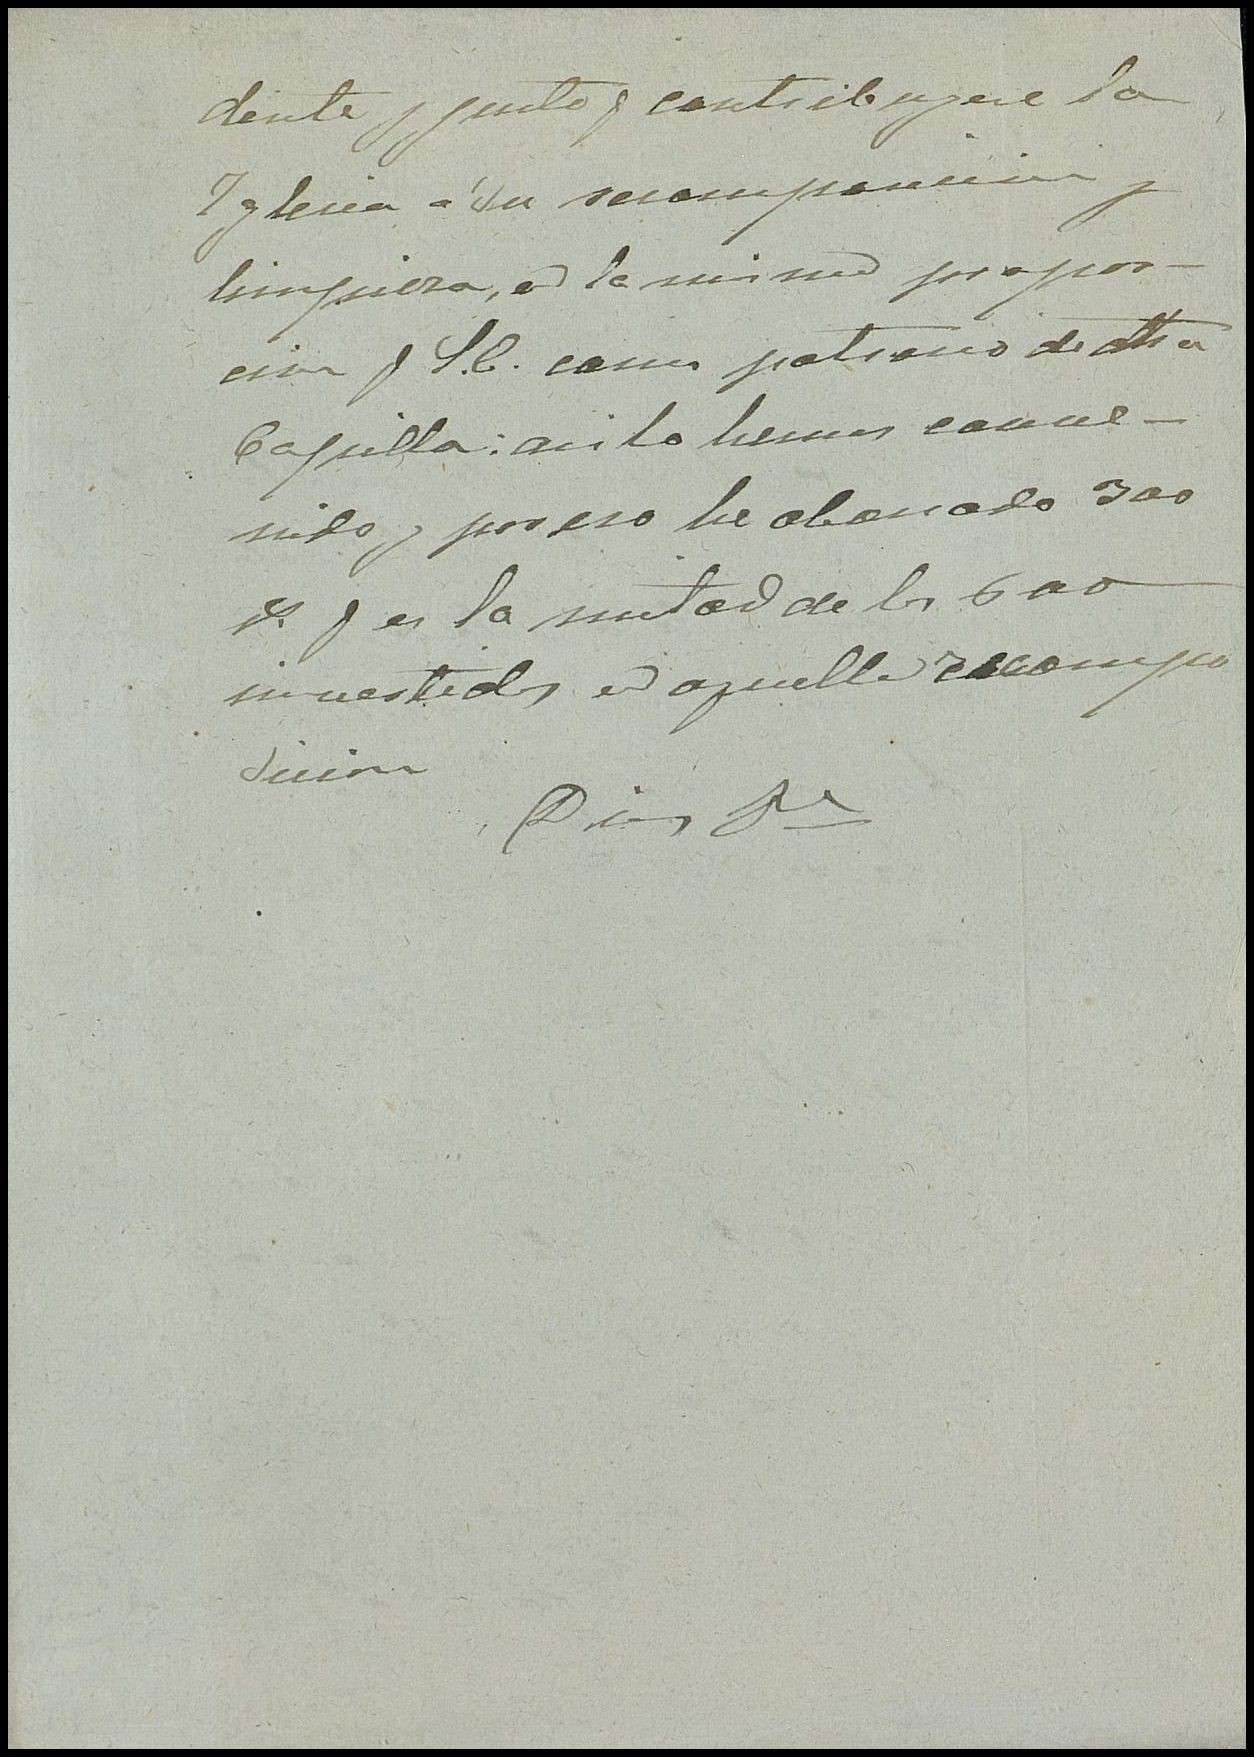 dente y justo q contribuyere la
Iglesia a su recomposicion y
limpieza, en la misma propor-
cion q S.E. como patrono de dha
Capilla: asi lo hemos conve-
nido y por eso he abonado 300
rs. q es la mitad de los 600
invertidos en aquella recompo
sicion
Dios